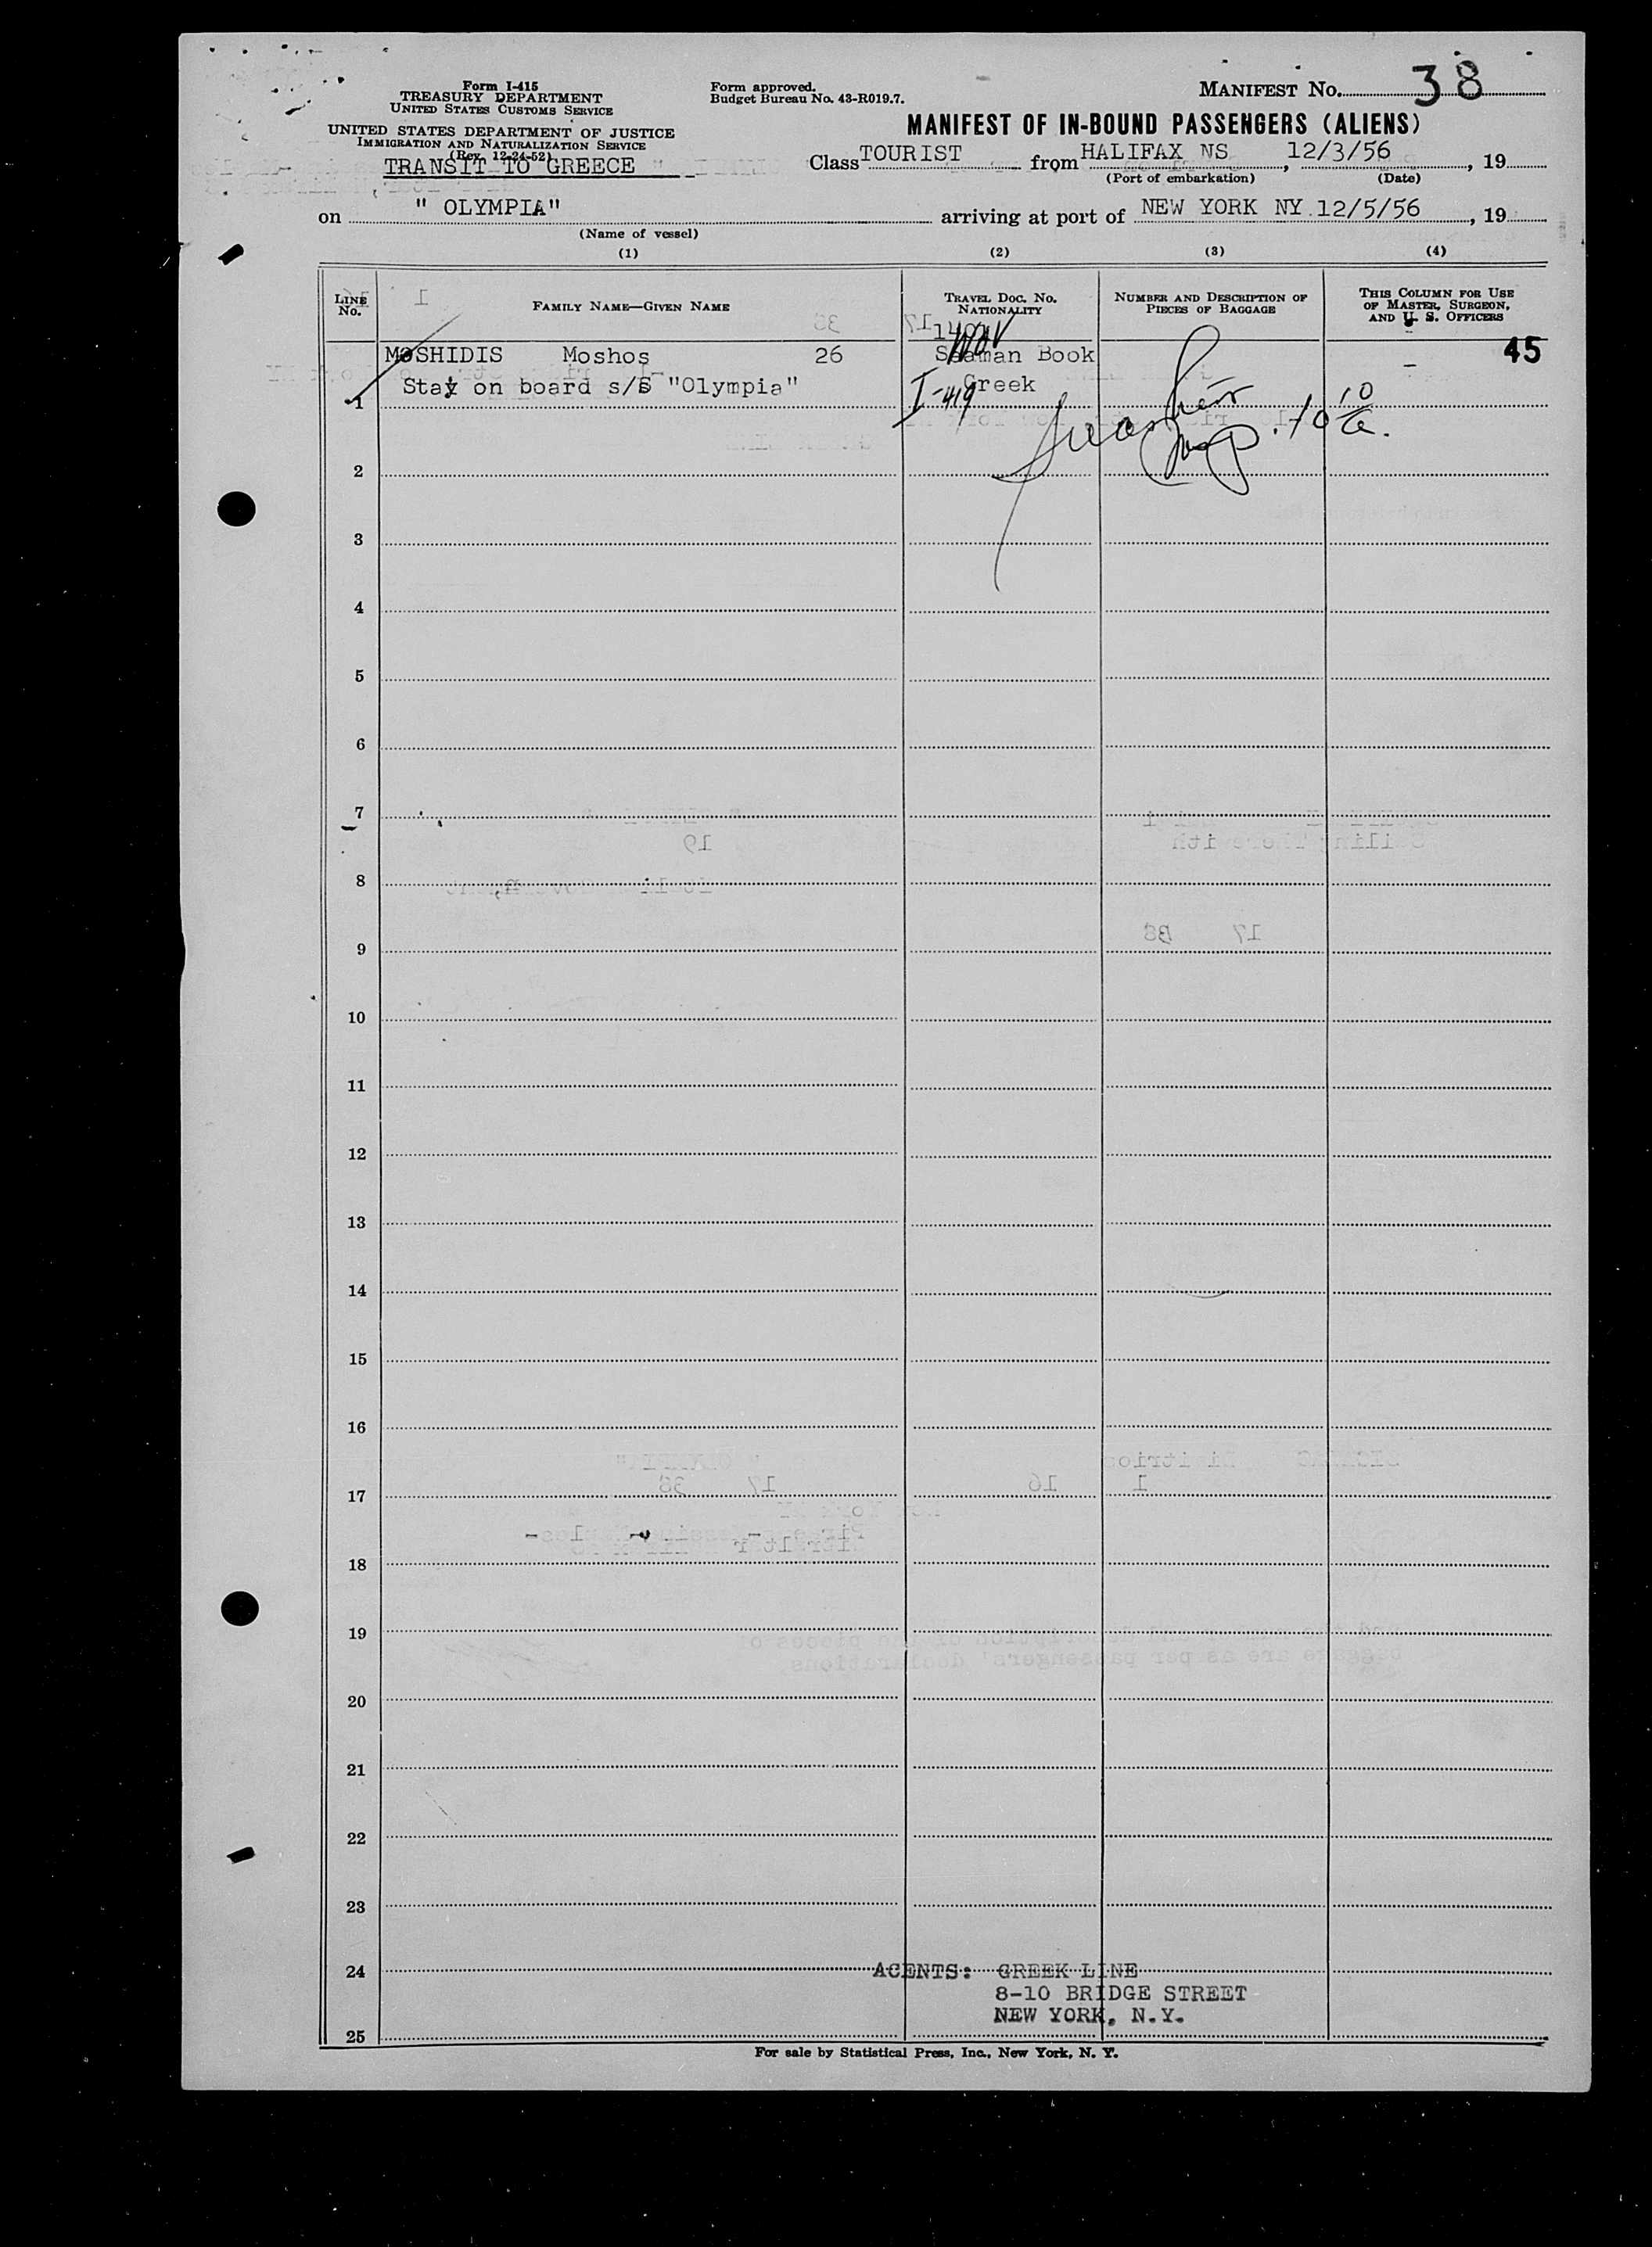 Form I-415
TREASURY DEPARTMENT
UNITED STATES CUSTOMS SERVICE
UNITED STATES DEPARTMENT OF JUSTICE
IMMIGRATION AND NATURALIZATION SERVICE
(Rev. 12-24-52)
TRANSIT TO GREECE
Form approved.
Budget Bureau No. 43-R019.7.
MANIFEST NO. 38
MANIFEST OF IN-BOUND PASSENGERS (ALIENS)
Class TOURIST from HALIFAX NS, 12/3/56, 19
(Port of embarkation) (Date)
on " OLYMPIA" arriving at port of NEW YORK NY 12/5/56, 19
(Name of vessel)
(1) (2) (3) (4)
LINE No. FAMILY NAME—GIVEN NAME TRAVEL DOC. NO. NATIONALITY NUMBER AND DESCRIPTION OF PIECES OF BAGGAGE THIS COLUMN FOR USE OF MASTER, SURGEON, AND U. S. OFFICERS
MOSHIDIS Moshos 26 Seaman Book 45
Stay on board s/s "Olympia" I-419 Greek
1
2
3
4
5
6
7
8
9
10
11
12
13
14
15
16
17
18
19
20
21
22
23
24 AGENTS: GREEK LINE
8-10 BRIDGE STREET
NEW YORK, N.Y.
25
For sale by Statistical Press, Inc., New York, N. Y.